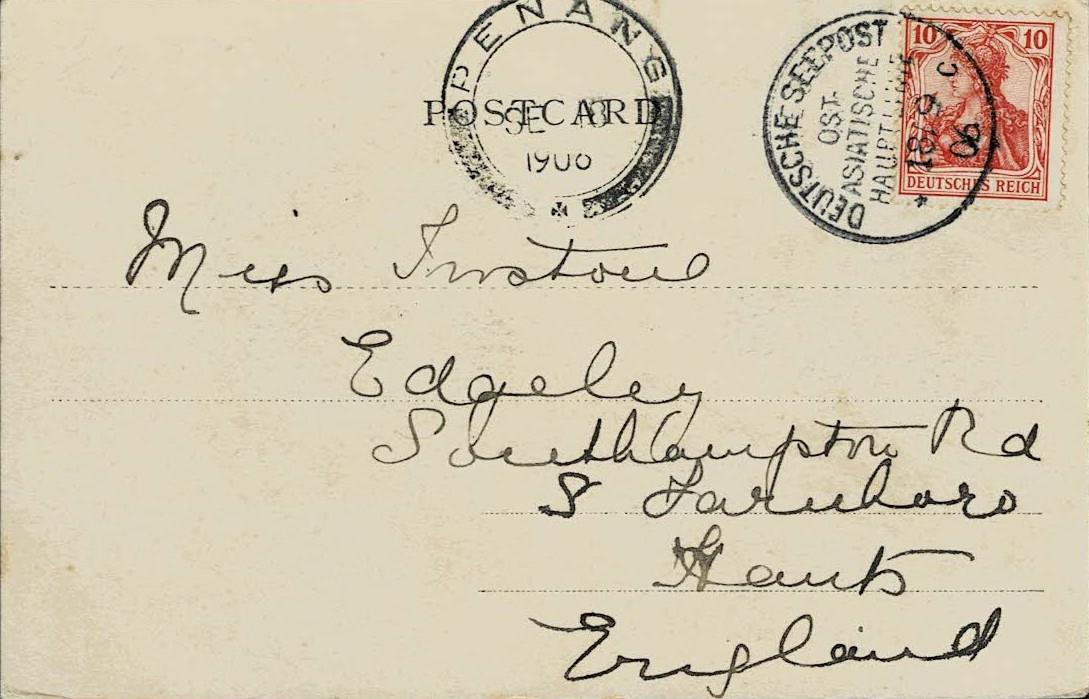 PENANG
POSTCARD
SE 13
1906
DEUTSCHE SEEPOST
OST-
ASIATISCHE
HAUPTLINIE
10 10
DEUTSCHES REICH
Miss
Edgeley
Southampton Rd
S Farnboro
Hants
England